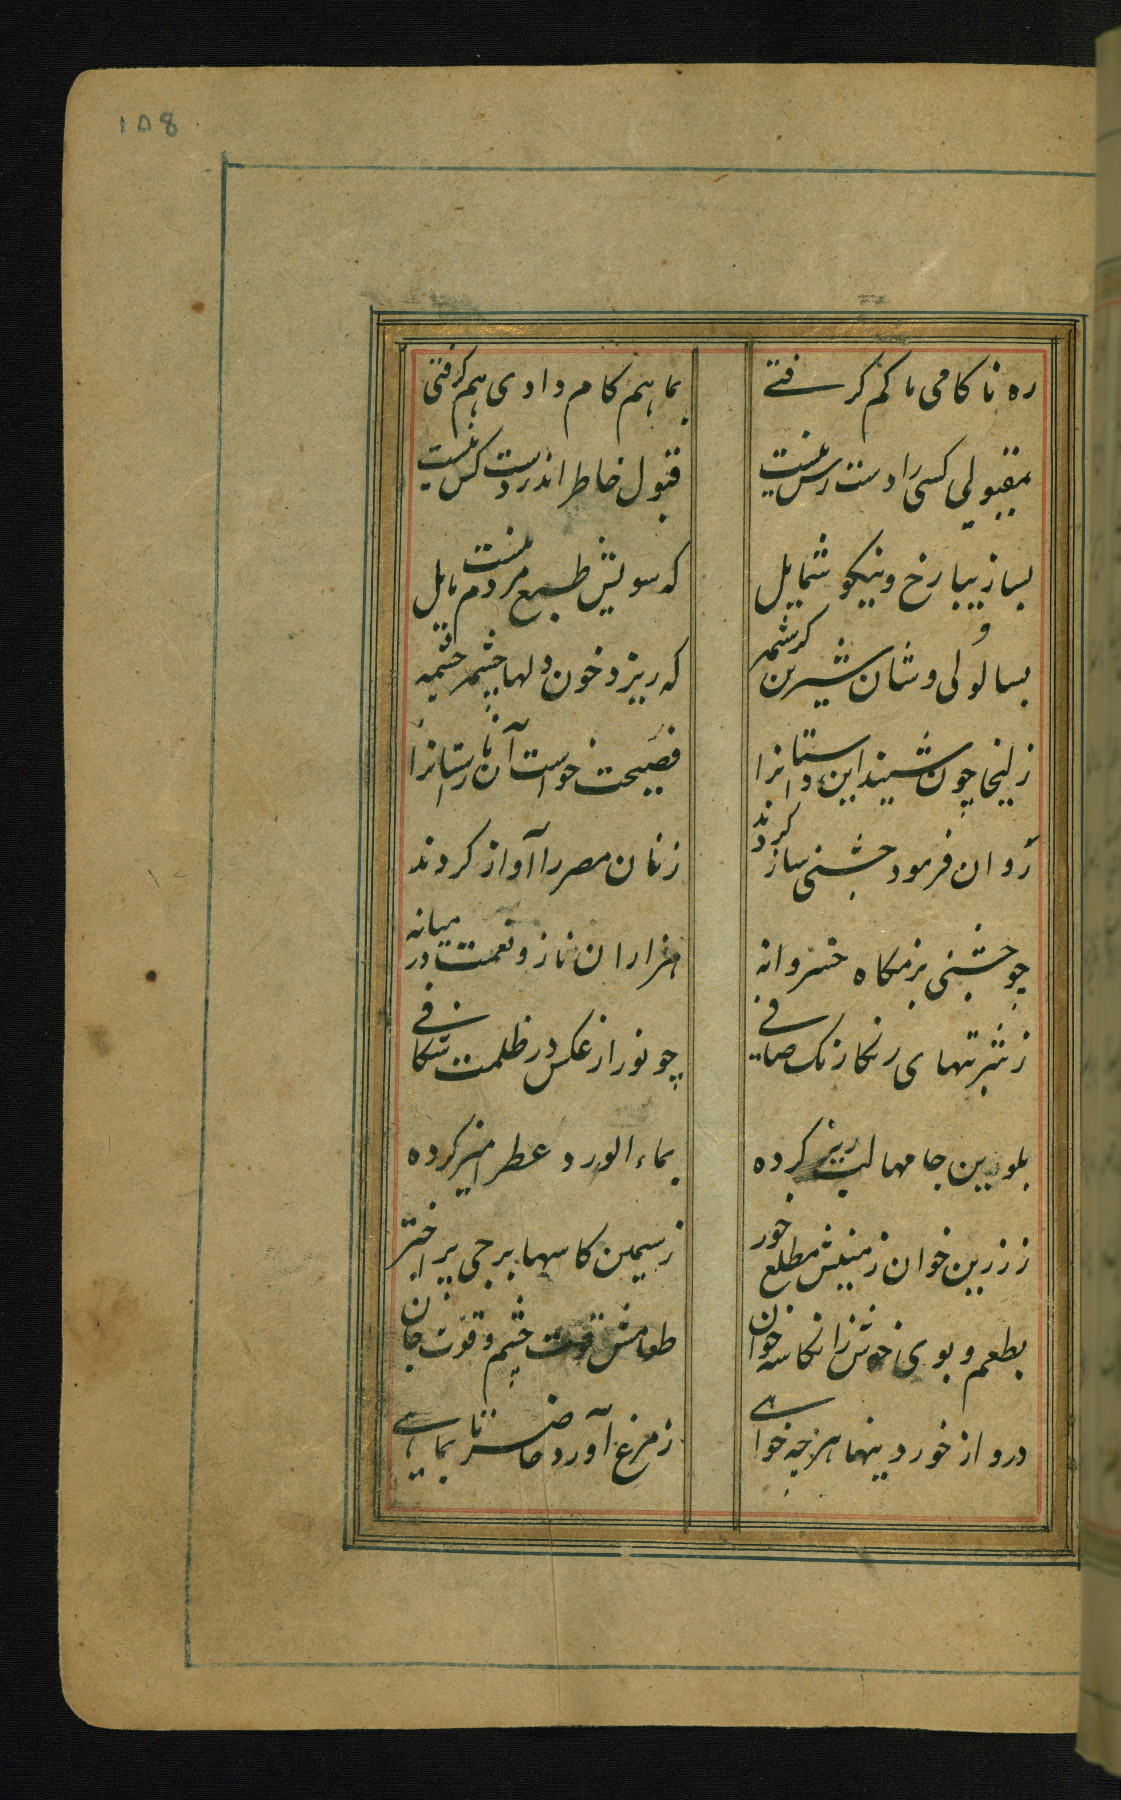 ۱۵۸
ره ناکامی ما کم گرفتی
بما هم کام دادی هم گرفتی
بمقبولی کسی را دست رس نیست
قبول خاطر اندر دست کس نیست
بسا زیبا رخ و نیکو شمایل
که سویش طبع مردم نیست مایل
بسا لولی وشان شیرین کرشمه
که ریزد خون دلها چشمه چشمه
زلیخا چون شنید این داستانرا
فضیحت خواست آن ناراستانرا
روان فرمود جشنی ساز کردند
زنان مصر را آواز کردند
چو جشنی بزمگاه خسروانه
هزاران ناز و نعمت در میانه
ز شربتهای رنگارنگ صافی
چو نور از عکس در ظلمت شکافی
بلورین جامها لبریز کرده
بماء الورد عطر امیز کرده
ز زرین خوان زمینش مطلع خور
ز سیمین کاسها برجی پر اختر
بطعم و بوی خوش زان کاسه خوان
طعامش قوت جشم و قوت جان
درو از خوردنیها هر چه خواهی
ز مرغ آورده حاضر تا بماهی